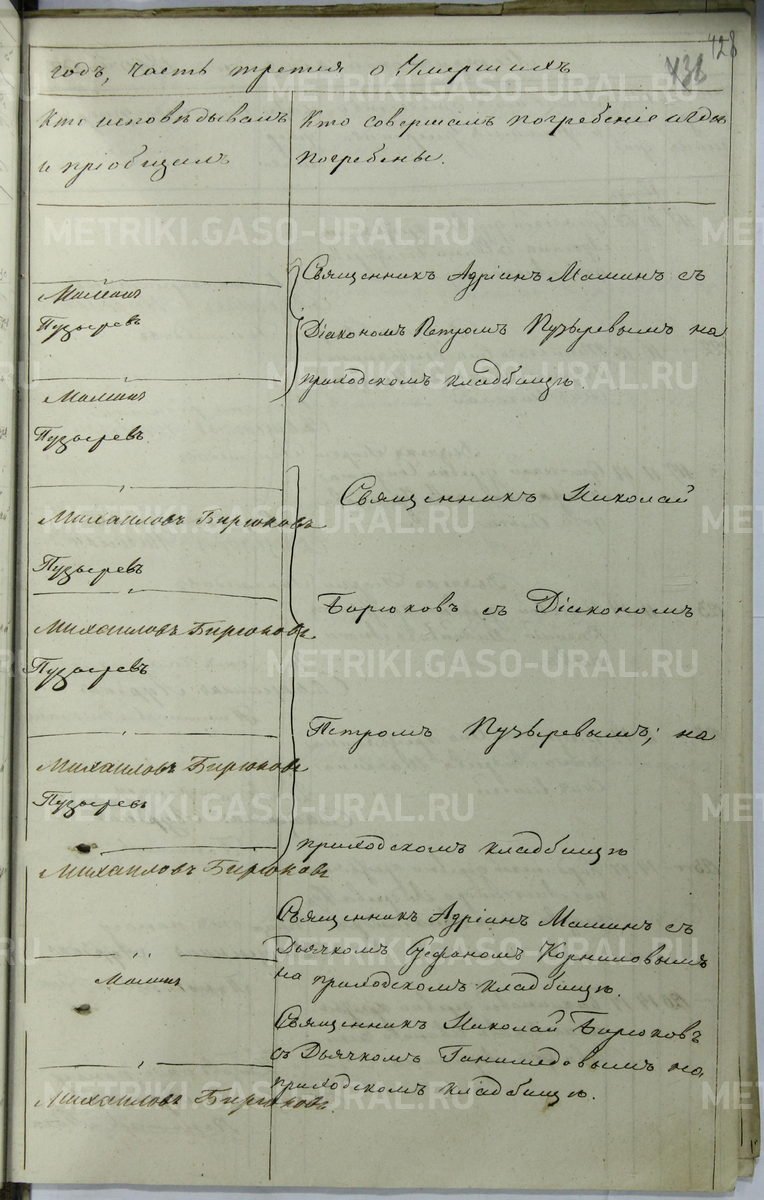 428
438
годъ, часть третия о Умершихъ
Кто исповѣдывалъ
и пріобщалъ
Кто совершалъ погребеніе и гдѣ
погребены.
METRIKI.GASO-URAL.RU
Маминъ
Пузыревъ
Маминъ
Пузыревъ
Священникъ Адріанъ Маминъ съ
Діакономъ Петромъ Пузыревымъ на
приходскомъ кладбищѣ.
Михаиловъ Бирюковъ
Пузыревъ
Михаиловъ Бирюковъ
Пузыревъ
Михаиловъ Бирюковъ
Пузыревъ
Михаиловъ Бирюковъ
Священникъ Николай
Бирюковъ съ Діакономъ
Петромъ Пузыревымъ; на
приходскомъ кладбищѣ
Маминъ
Священникъ Адріанъ Маминъ съ
Дьячкомъ Стефаномъ Корниловымъ
на приходскомъ кладбищѣ.
Михаиловъ Бирюковъ
Священникъ Николай Бирюковъ
съ Дьячкомъ Ганимедовымъ на
приходскомъ кладбищѣ.